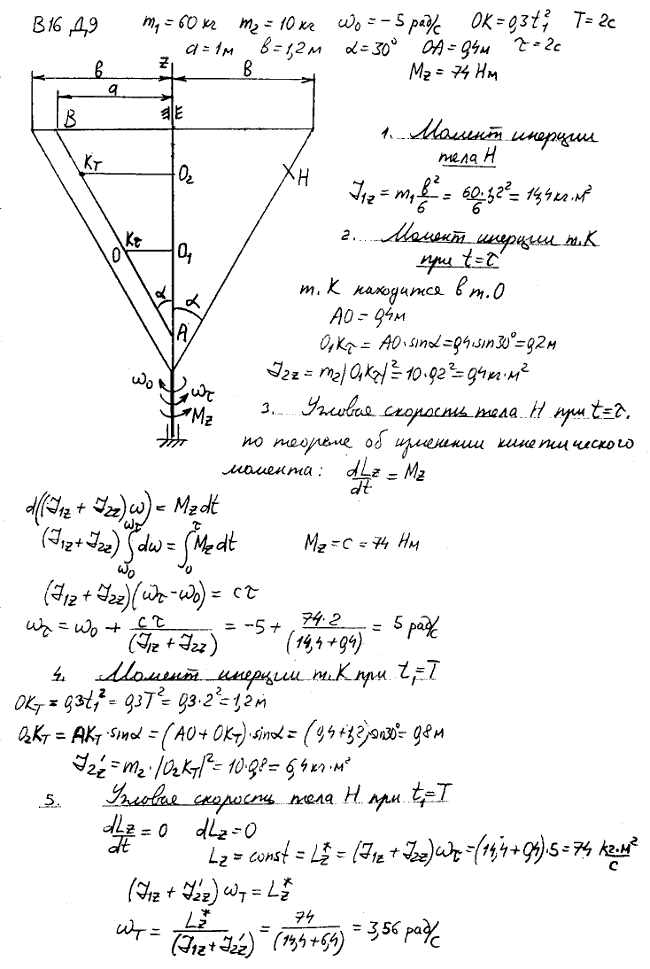 В16 Д9 m₁=60 кг m₂=10 кг ω₀=-5 рад/с OK=0,3t₁² T=2с
a=1м в=1,2м α=30° OA=0,4м τ=2с
Mz=74 Нм
в z в
a
B E
Kт O₂ H
O Kτ O₁
α α
A
ω₀ ωτ
Mz
1. Момент инерции
тела H
J1z = m₁ в²/6 = 60·1,2²/6 = 14,4 кг·м²
2. Момент инерции т.K
при t=τ
т. K находится в т.O
AO=0,4м
O₁Kτ = AO·sinα=0,4·sin30°=0,2м
J2z = m₂|O₁Kτ|²=10·0,2²=0,4кг·м²
3. Угловая скорость тела H при t=τ.
по теореме об изменении кинетического
момента: dLz/dt = Mz
d((J1z + J2z)ω) = Mz dt
(J1z+J2z) ∫ω₀^ωτ dω = ∫₀^τ Mz dt Mz=c=74 Нм
(J1z + J2z)(ωτ-ω₀) = cτ
ωτ = ω₀ + cτ/(J1z + J2z) = -5 + 74·2/(14,4+0,4) = 5 рад/с
4. Момент инерции т.K при t₁=T
OKт = 0,3t₁² = 0,3T² = 0,3·2² = 1,2 м
O₂Kт = AKт·sinα = (AO+OKт)·sinα = (0,4+1,2)sin30° = 0,8 м
J2z' = m₂·|O₂Kт|² = 10·0,8² = 6,4 кг·м²
5. Угловая скорость тела H при t₁=T
dLz/dt = 0 dLz=0
Lz = const = Lz* = (J1z + J2z)ωτ = (14,4+0,4)·5 = 74 кг·м²/с
(J1z + J2z')ωт = Lz*
ωт = Lz*/(J1z+J2z') = 74/(14,4+6,4) = 3,56 рад/с